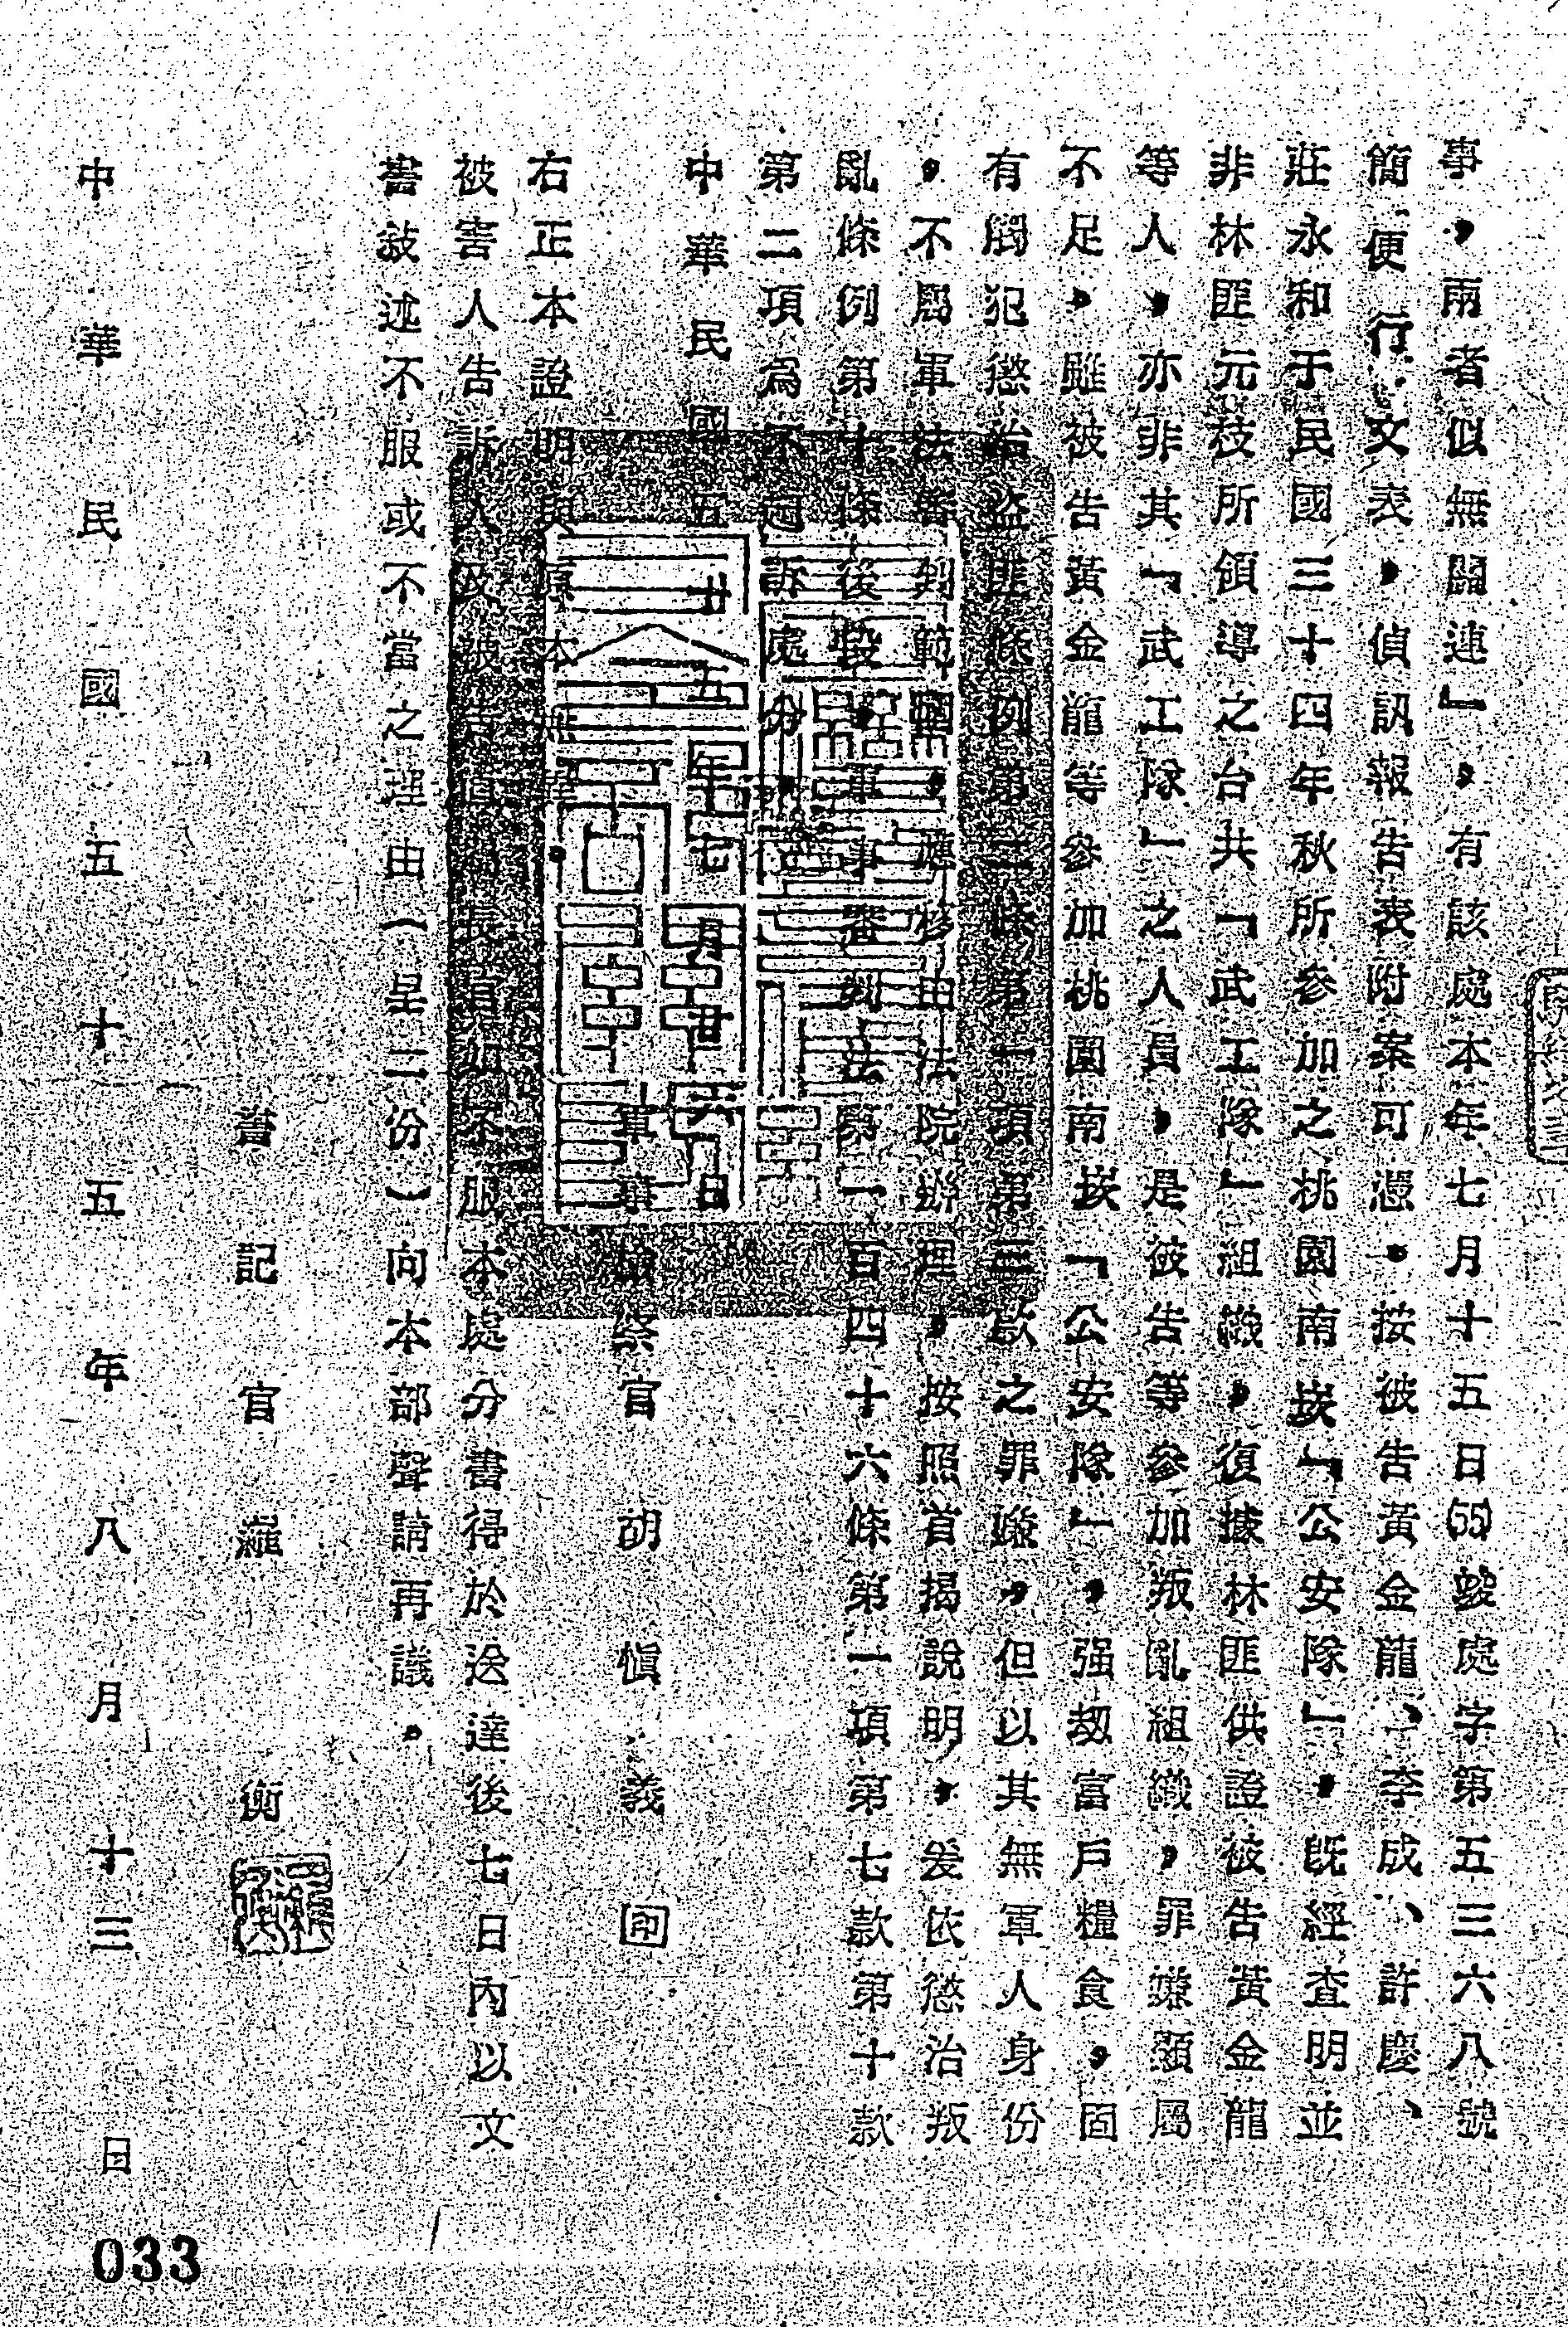 事，兩者似無關連」，有該處本年七月十五日(55)處字第五三六八號
簡便行文表，偵訊報告表附案可憑。按被告黃金龍、李成、許慶、
莊永和于民國三十四年秋所參加之桃園南崁「公安隊」，既經查明並
非林匪元枝所領導之台共「武工隊」組織，復據林匪供證被告黃金龍
等人，亦非其「武工隊」之人員，是被告等參加叛亂組織，罪嫌顯屬
不足，雖被告黃金龍等參加桃園南崁「公安隊」，强刼富戶糧食，固
有觸犯懲治盜匪條例第三條第一項第三款之罪嫌，但以其無軍人身份
，不屬軍法審判範圍，應移由法院辦理，按照首揭說明，爰依懲治叛
亂條例第十條後段，軍事審判法第一百四十六條第一項第七款第十款
第二項為不起訴處分。
中華民國五十五年七月廿六日
軍事檢察官胡慎義 印
右正本證明與原本無異。
被害人告訴人及被告直屬長官如不服本處分書得於送達後七日內以文
書敍述不服或不當之理由（呈二份）向本部聲請再議。
書記官 衡
中華民國五十五年八月十三日
033